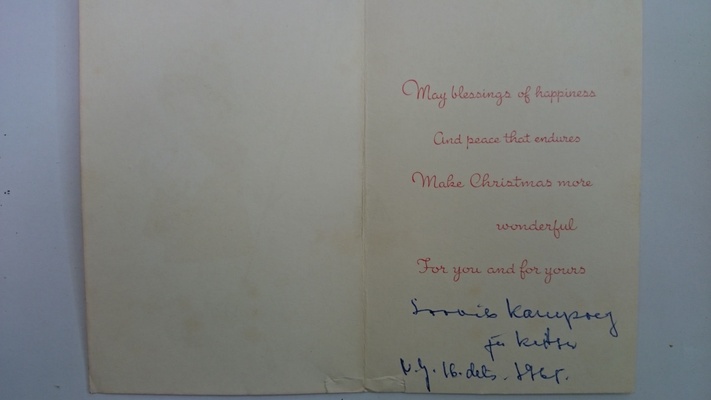 May blessings of happiness
And peace that endures
Make Christmas more
wonderful
For you and for yours
Soovib
N.Y. 16. dets. 1965.